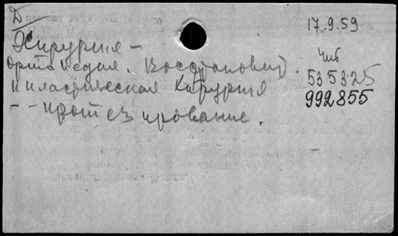 Д
Хирургия – 17.9.59
Ортопедия. Восстановит.
и пластическая хирургия
535325
992855
– – протезирование.